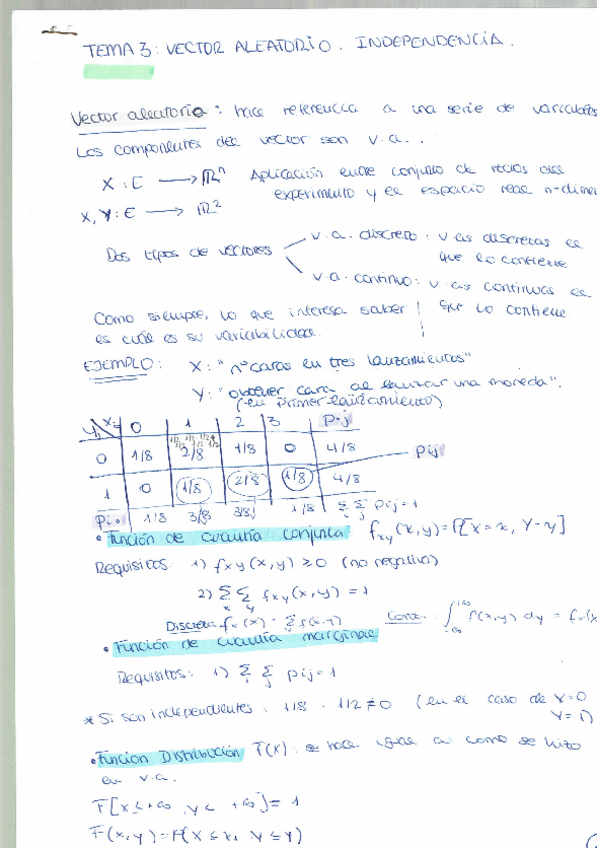 TEMA 3: VECTOR ALEATORIO. INDEPENDENCIA.
Vector aleatorio: hace referencia a una serie de variables
Los componentes del vector son v.a..
X : E → ℝⁿ Aplicación entre conjunto de
experimento y el espacio real n-dimen
X, Y : E → ℝ²
Dos tipos de vectores
v.a. discreto: v as discretas es
que lo contiene
v.a. continuo: v. as continuas es
que lo contiene
Como siempre, lo que interesa saber
es cuál es su variabilidad.
EJEMPLO: X: "nº caras en tres lanzamientos"
Y: "obtener cara al lanzar una moneda".
(en primer lanzamiento)
0 1 2 3 P·j
0 1/8 2/8 1/8 0 4/8
Pij
1 0 1/8 2/8 1/8 4/8
Pi· 1/8 3/8 3/8 1/8 Σ Σ Pij = 1
• Función de cuantía conjunta fxy(x,y) = P[X=x, Y=y]
Requisitos: 1) fxy(x,y) ≥ 0 (no negativa)
2) Σ Σ fxy(x,y) = 1
Discreta
Cont.
• Función de cuantía marginal
Requisitos: 1) Σ Σ Pij = 1
* Si son independientes: 1/8 · 1/2 ≠ 0 (en el caso de X=0
Y=1)
• Función Distribución F(x): se hace igual a como se hizo
en v.a.
F[X ≤ +∞, Y ≤ +∞] = 1
F(x,y) = P(X ≤ x, Y ≤ y)